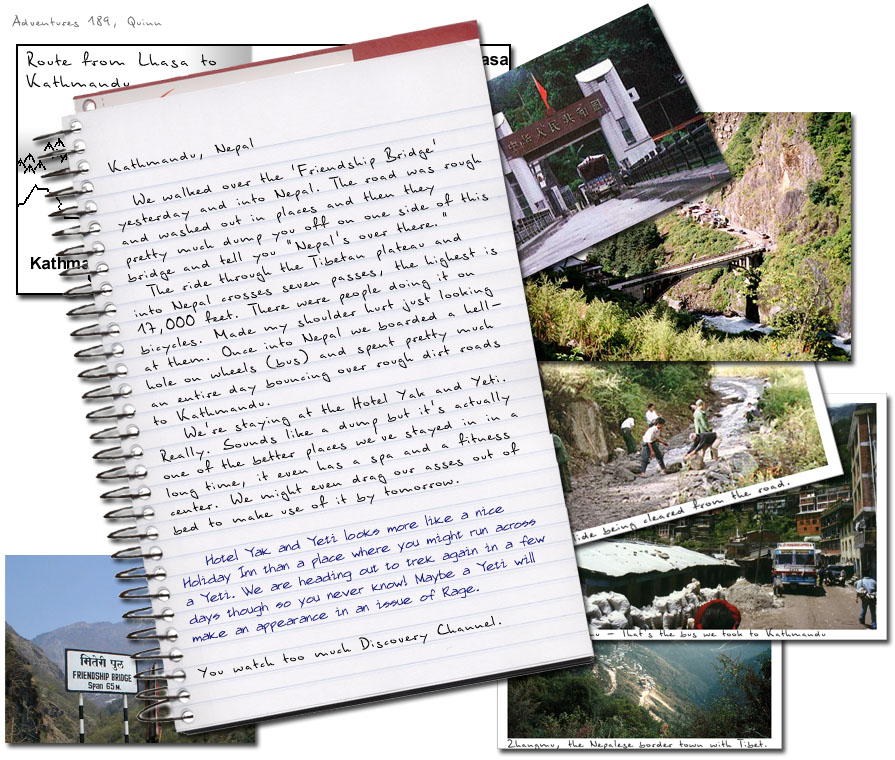 Adventures 189, Quinn
Route from Lhasa to
Kathmandu
asa
Kathma
Kathmandu, Nepal
We walked over the 'Friendship Bridge'
yesterday and into Nepal. The road was rough
and washed out in places and then they
pretty much dump you off on one side of this
bridge and tell you "Nepal's over there."
The ride through the Tibetan plateau and
into Nepal crosses seven passes, the highest is
17,000 feet. There were people doing it on
bicycles. Made my shoulder hurt just looking
at them. Once into Nepal we boarded a hell-
hole on wheels (bus) and spent pretty much
an entire day bouncing over rough dirt roads
to Kathmandu.
We're staying at the Hotel Yak and Yeti.
Really. Sounds like a dump but it's actually
one of the better places we've stayed in in a
long time, it even has a spa and a fitness
center. We might even drag our asses out of
bed to make use of it by tomorrow.
Hotel Yak and Yeti looks more like a nice
Holiday Inn than a place where you might run across
a Yeti. We are heading out to trek again in a few
days though so you never know! Maybe a Yeti will
make an appearance in an issue of Rage.
You watch too much Discovery Channel.
ide being cleared from the road.
mu - That's the bus we took to Kathmandu
Zhangmu, the Nepalese border town with Tibet.
मितेरी पुल
FRIENDSHIP BRIDGE
Span 65 M.